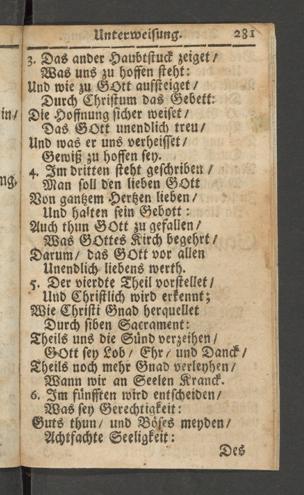 Unterweisung. 281
3. Das ander Haubtstuck zeiget/
Was uns zu hoffen steht:
Und wie zu GOtt aufsteiget/
Durch Christum das Gebett:
Die Hoffnung sicher weiset/
Das GOtt unendlich treu/
Und was er uns verheisset/
Gewiß zu hoffen sey.
4. Im dritten steht geschriben/
Man soll den lieben GOtt
Von gantzem Hertzen lieben/
Und halten sein Gebott:
Auch thun GOtt zu gefallen/
Was GOttes Kirch begehrt/
Darum/ das GOtt vor allen
Unendlich liebens werth.
5. Der vierdte Theil vorstellet/
Und Christlich wird erkennt;
Wie Christi Gnad herquellet
Durch siben Sacrament:
Theils uns die Sünd verzeihen/
GOtt sey Lob/ Ehr/ und Danck/
Theils noch mehr Gnad verleyhen/
Wann wir an Seelen Kranck.
6. Im fünfften wird entscheiden/
Was sey Gerechtigkeit:
Guts thun/ und Böses meyden/
Achtfachte Seeligkeit:
Des
in/
ng.